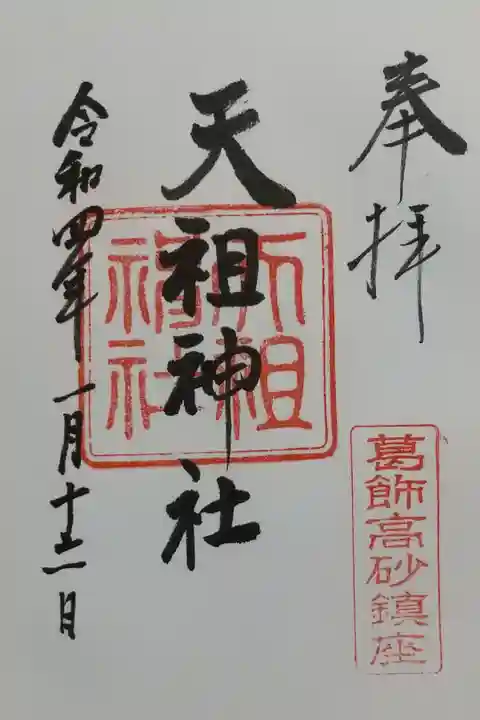 奉拝
葛飾高砂鎮座
天祖神社
天祖神社
令和四年一月十三日